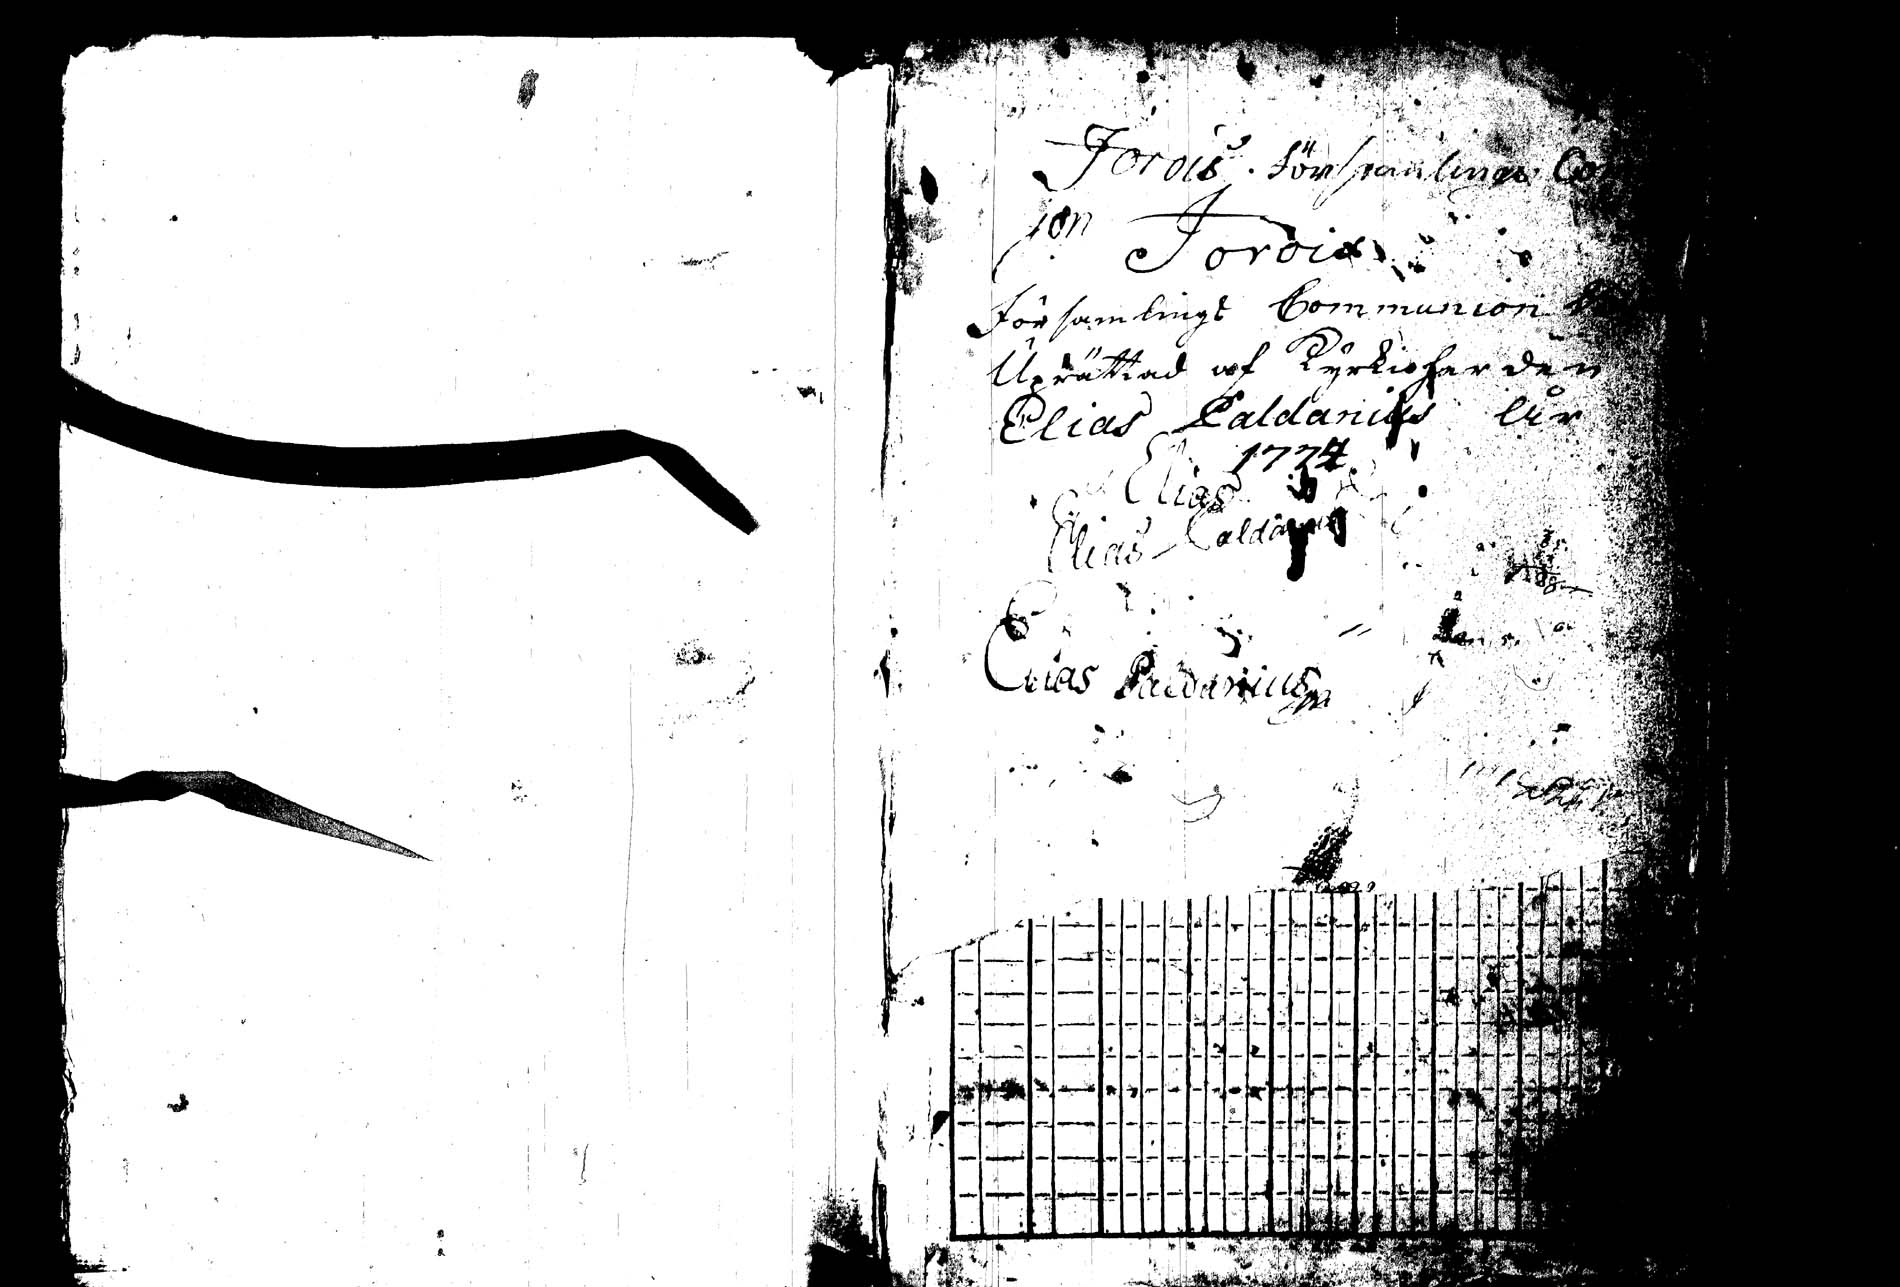 Jorois Församlings
ion
Jorois
Församlings Communion
Uprättad af Kyrkioherden
Elias Paldanius
1774
Elias
Elias Paldanius
Elias Paldanius